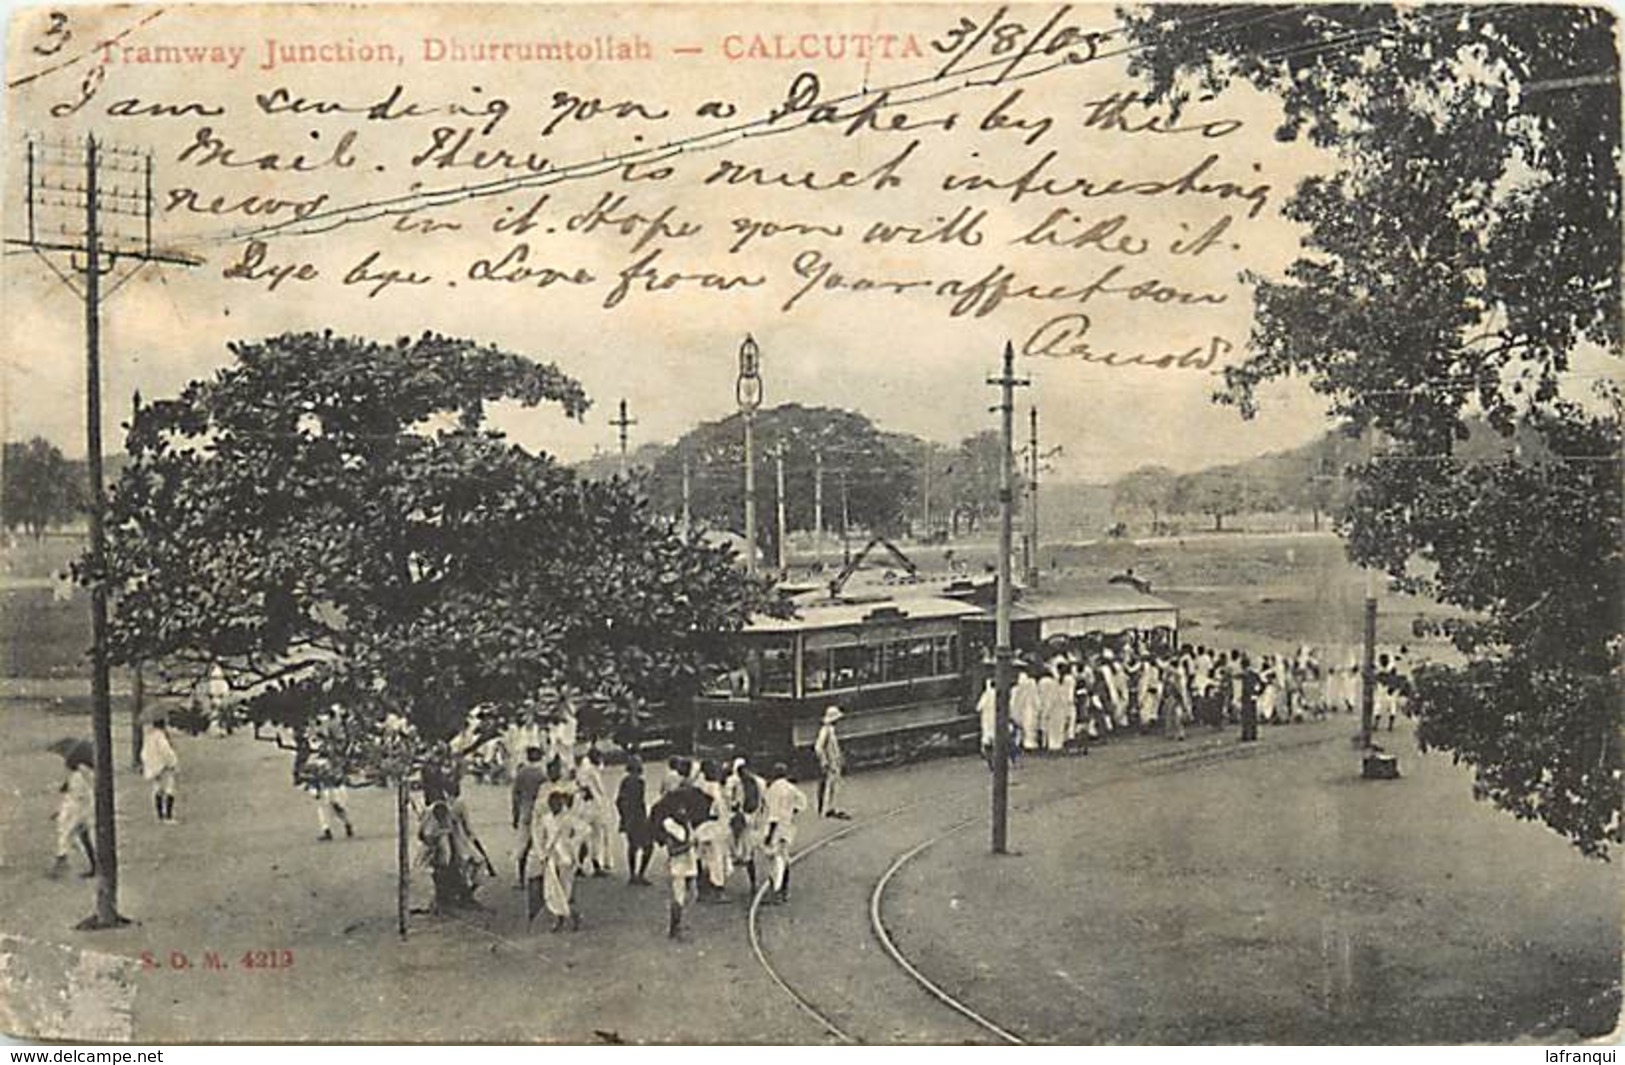 3
Tramway Junction, Dhurrumtollah — CALCUTTA 3/8/05
I am sending you a Paper by this
Mail. There is much interesting
news in it. Hope you will like it.
Bye bye. Love from Your affect son
Arnold
143
S. D. M. 4213
www.delcampe.net
lafranqui